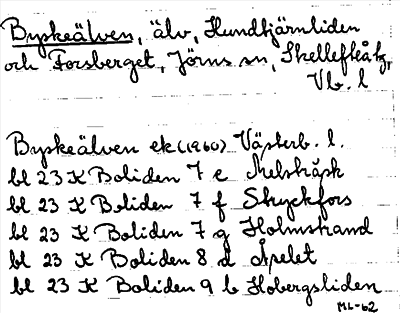 Byskeälven, älv, Hundtjärnliden
och Forsberget, Jörns sn, Skellefteå tg,
Vb. l
Byskeälven ek (1960) Västerb. l.
bl 23 K Boliden 7 e Melsträsk
bl 23 K Boliden 7 f Skyckfors
bl 23 K Boliden 7 g Holmstrand
bl 23 K Boliden 8 d Åpelet
bl 23 K Boliden 9 b Hobergsliden
ML-62